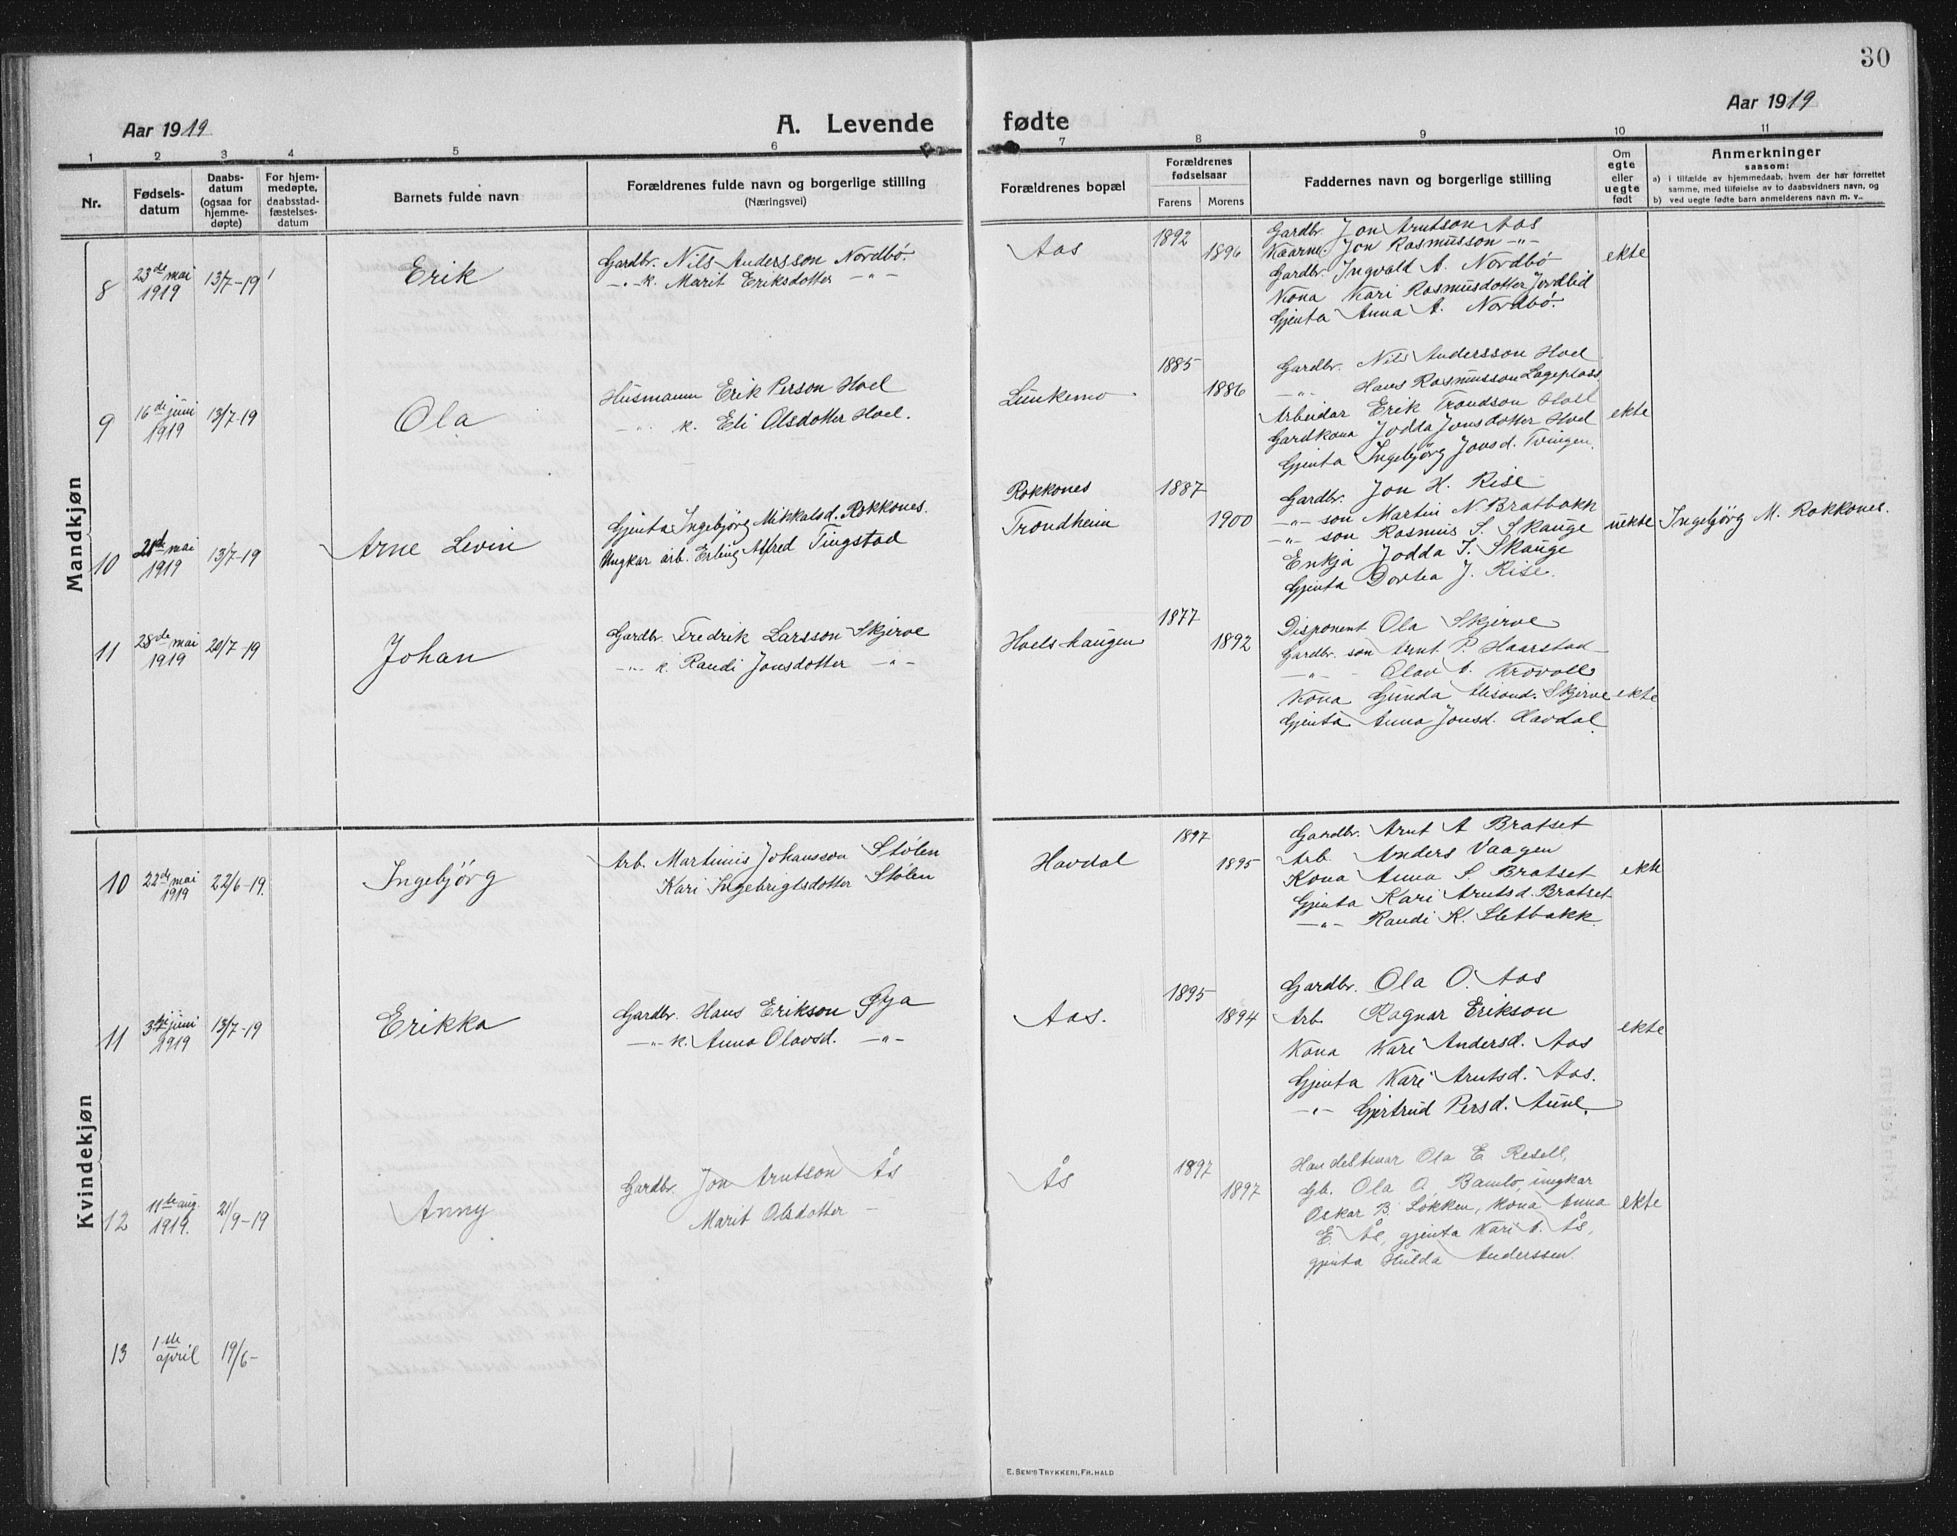 30
Aar 1919
A. Levende fødte
Aar 1919
1 2 3 4 5 6 7 8 9 10 11
Nr.
Fødselsdatum
Daabsdatum (ogsaa for hjemmedøpte)
For hjemmedøpte, daabsstadfæstelsesdatum
Barnets fulde navn
Forældrenes fulde navn og borgerlige stilling
(Næringsvei)
Forældrenes bopæl
Forældrenes fødselsaar
Farens Morens
Faddernes navn og borgerlige stilling
Om egte eller uegte født
Anmerkninger
saasom:
a) i tilfælde av hjemmedaab, hvem der har forrettet samme, med tilføielse av to daabsvidners navn, og
b) ved uegte fødte barn anmelderens navn m. v..
Mandkjøn
8 23de mai 1919 13/7-19 Erik
Gardbr. Nils Andersson Nordbø.
-"- k. Marit Eriksdotter -"-
Aas 1892 1896
Gardbr. Jon Arntson Aas
Jon Rasmusson -"-
Gardbr. Ingvald A. Nordbø
Kona Kari Rasmusdotter Jordlid
Gjenta Anna A. Nordbø.
ekte
9 16de juni 1919 13/7-19 Ola
Husmann Erik Person Hoel
-"- k. Eli Olsdotter Hoel.
Lunkemo 1885 1886
Gardbr. Nils Andersson Hoel
-"- Hans Rasmusson
Arbeidar Erik Trondson Hoel
Gardkona Jodda Jonsdotter Hoel
Gjenta Ingebjørg Jonsd. Tvingen.
ekte
10 mai 1919 13/7-19 Arne Levin
Gjenta Ingebjørg Mikkalsd. Rokkones.
Ungkar arb. Erling Alfred Tingstad
Rokkones
Trondheim
1887 1900
Gardbr. Jon H. Rise
-"- son Martin N. Bratbakk
-"- son Rasmus S. Skauge
Enkja Jodda J. Skauge
Gjenta Dortea J. Rise.
uekte
Ingebjørg M. Rokkones.
11 28de mai 1919 20/7-19 Johan
Gardbr. Fredrik Larsson Skjerve
-"- k. Randi Jonsdotter -"-
Hoelshaugen 1877 1892
Disponent Ola Skjerve
Gardbr. son Arnt P. Haarstad
-"- Olav A. Krovoll
Kona Gunda Skjerve
Gjenta Anna Jonsd. Havdal.
ekte
Kvindekjøn
10 22de mai 1919 22/6-19. Ingebjørg
Arb. Martinus Johansson Stølen
Kari Ingebrigtsdotter Stølen
Havdal 1897 1895
Gardbr. Arnt A Bratset
Arb. Anders Vaagen
Kona Anna S. Bratset
Gjenta Kari Arntsd. Bratset
-"- Randi K. Sletbakk
ekte
11 3de juni 1919 13/7-19 Erikka
Gardbr. Hans Erikson Gya
-"- k. Anna Olavsd. -"-
Aas. 1895 1894
Gardbr. Ola O. Aas
Arb. Ragnar Erikson
Kona Kari Andersd. Aas
Gjenta Kari Arntsd. Aas.
-"- Gjertrud Persd. Aune.
ekte
12 11te aug. 1919. 21/9-19 Anny
Gardbr. Jon Arntson Ås
Marit Olsdotter -
Ås 1897 1897
Ola E. Resell,
Gb. Ola O. Bamlo, ungkar
Oskar B. Løkken, kona Anna
E. Ås, gjenta Kari A. Ås,
gjenta Hulda Anderssen.
ekte
13 1ste april 19/6-
E. Sem's Trykkeri, Fr.hald